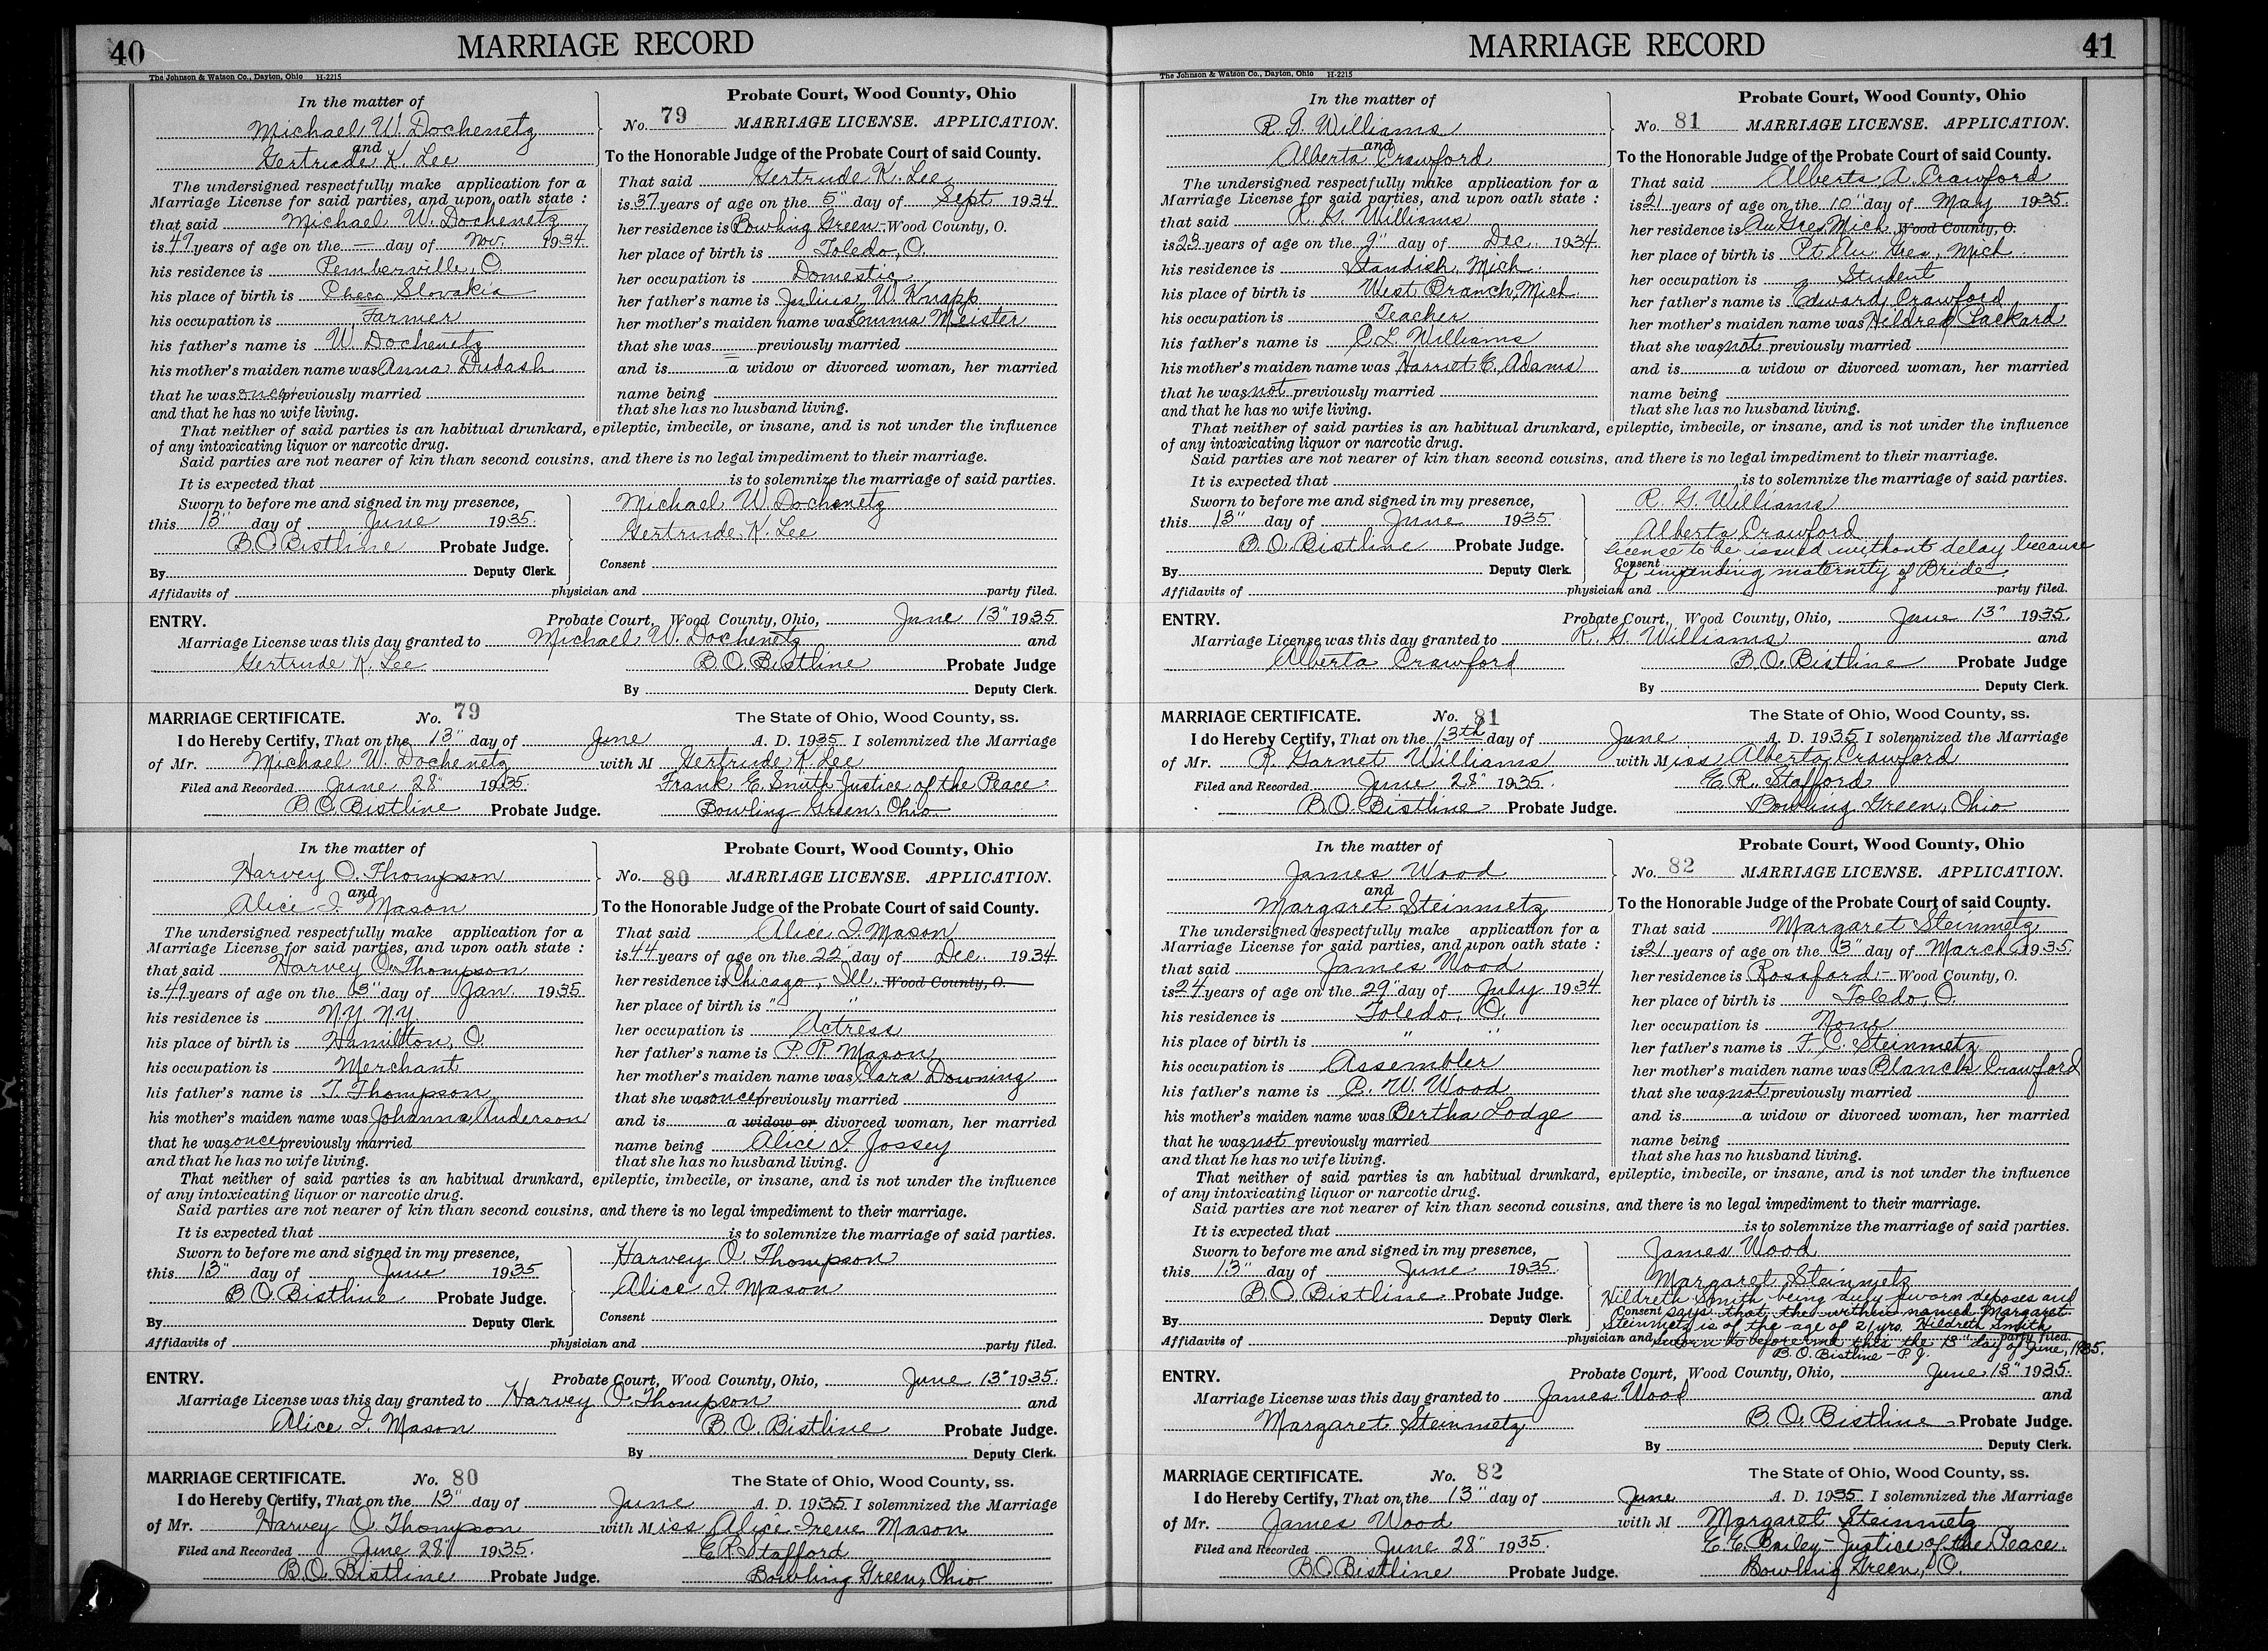 40
MARRIAGE RECORD
The Johnson & Watson Co., Dayton, Ohio H-2215
In the matter of
Michael W. Dochenetz
and
Gertrude K. Lee
The undersigned respectfully make application for a
Marriage License for said parties, and upon oath state :
that said Michael W. Dochenetz
is 47 years of age on the — day of Nov. 1934
his residence is Pemberville, O.
his place of birth is Checo Slovakia
his occupation is Farmer
his father's name is W. Dochenetz
his mother's maiden name was Anna Dudash
that he was once previously married
and that he has no wife living.
Probate Court, Wood County, Ohio
No. 79 MARRIAGE LICENSE. APPLICATION.
To the Honorable Judge of the Probate Court of said County.
That said Gertrude K. Lee
is 37 years of age on the 5" day of Sept 1934
her residence is Bowling Green - Wood County, O.
her place of birth is Toledo, O.
her occupation is Domestic
her father's name is Julius W. Knapp
her mother's maiden name was Emma Meister
that she was previously married
and is a widow or divorced woman, her married
name being
that she has no husband living.
That neither of said parties is an habitual drunkard, epileptic, imbecile, or insane, and is not under the influence
of any intoxicating liquor or narcotic drug.
Said parties are not nearer of kin than second cousins, and there is no legal impediment to their marriage.
It is expected that is to solemnize the marriage of said parties.
Sworn to before me and signed in my presence,
this 13" day of June 1935.
B.O. Bistline Probate Judge.
By Deputy Clerk.
Michael W. Dochenetz
Gertrude K. Lee
Consent
Affidavits of physician and party filed.
ENTRY. Probate Court, Wood County, Ohio, June 13" 1935
Marriage License was this day granted to Michael W. Dochenetz and
Gertrude K. Lee B.O. Bistline Probate Judge
By Deputy Clerk.
MARRIAGE CERTIFICATE. No. 79 The State of Ohio, Wood County, ss.
I do Hereby Certify, That on the 13" day of June A. D. 1935 I solemnized the Marriage
of Mr. Michael W. Dochenetz with M Gertrude K. Lee
Filed and Recorded June 28" 1935. Frank E. Smith - Justice of the Peace
B.O. Bistline Probate Judge. Bowling Green, Ohio
In the matter of
Harvey O. Thompson
and
Alice I. Mason
The undersigned respectfully make application for a
Marriage License for said parties, and upon oath state :
that said Harvey O. Thompson
is 49 years of age on the 3" day of Jan. 1935
his residence is N.Y. N.Y.
his place of birth is Hamilton, O.
his occupation is Merchant
his father's name is T. Thompson
his mother's maiden name was Johanna Anderson
that he was once previously married
and that he has no wife living.
Probate Court, Wood County, Ohio
No. 80 MARRIAGE LICENSE. APPLICATION.
To the Honorable Judge of the Probate Court of said County.
That said Alice I. Mason
is 44 years of age on the 22" day of Dec. 1934
her residence is Chicago, Ill. Wood County, O.
her place of birth is " "
her occupation is Actress
her father's name is P. P. Mason
her mother's maiden name was Clara Downing
that she was once previously married
and is a widow or divorced woman, her married
name being Alice I. Jossey
that she has no husband living.
That neither of said parties is an habitual drunkard, epileptic, imbecile, or insane, and is not under the influence
of any intoxicating liquor or narcotic drug.
Said parties are not nearer of kin than second cousins, and there is no legal impediment to their marriage.
It is expected that is to solemnize the marriage of said parties.
Sworn to before me and signed in my presence,
this 13" day of June 1935
B.O. Bistline Probate Judge.
By Deputy Clerk.
Harvey O. Thompson
Alice I. Mason
Consent
Affidavits of physician and party filed.
ENTRY. Probate Court, Wood County, Ohio, June 13" 1935.
Marriage License was this day granted to Harvey O. Thompson and
Alice I. Mason B.O. Bistline Probate Judge.
By Deputy Clerk.
MARRIAGE CERTIFICATE. No. 80 The State of Ohio, Wood County, ss.
I do Hereby Certify, That on the 13" day of June A. D. 1935 I solemnized the Marriage
of Mr. Harvey O. Thompson with Miss Alice Irene Mason
Filed and Recorded June 28" 1935. E.R. Stafford
B.O. Bistline Probate Judge. Bowling Green, Ohio
MARRIAGE RECORD
41
The Johnson & Watson Co., Dayton, Ohio H-2215
In the matter of
R. G. Williams
and
Alberta Crawford
The undersigned respectfully make application for a
Marriage License for said parties, and upon oath state :
that said R. G. Williams
is 23 years of age on the 9" day of Dec. 1934
his residence is Standish, Mich.
his place of birth is West Branch, Mich.
his occupation is Teacher
his father's name is C. L. Williams
his mother's maiden name was Harriet E. Adams
that he was not previously married
and that he has no wife living.
Probate Court, Wood County, Ohio
No. 81 MARRIAGE LICENSE. APPLICATION.
To the Honorable Judge of the Probate Court of said County.
That said Alberta A. Crawford
is 21 years of age on the 10" day of May 1935.
her residence is Au Gres, Mich. Wood County, O.
her place of birth is Pt. Au Gres, Mich.
her occupation is Student
her father's name is Edward Crawford
her mother's maiden name was Hildred Packard
that she was not previously married
and is a widow or divorced woman, her married
name being
that she has no husband living.
That neither of said parties is an habitual drunkard, epileptic, imbecile, or insane, and is not under the influence
of any intoxicating liquor or narcotic drug.
Said parties are not nearer of kin than second cousins, and there is no legal impediment to their marriage.
It is expected that is to solemnize the marriage of said parties.
Sworn to before me and signed in my presence,
this 13" day of June 1935
B.O. Bistline Probate Judge.
By Deputy Clerk.
R. G. Williams
Alberta Crawford
License to be issued without delay because
Consent of impending maternity of Bride
Affidavits of physician and party filed.
ENTRY. Probate Court, Wood County, Ohio, June 13" 1935.
Marriage License was this day granted to R. G. Williams and
Alberta Crawford B.O. Bistline Probate Judge
By Deputy Clerk.
MARRIAGE CERTIFICATE. No. 81 The State of Ohio, Wood County, ss.
I do Hereby Certify, That on the 13th day of June A. D. 1935 I solemnized the Marriage
of Mr. R. Garnet Williams with Miss Alberta Crawford
Filed and Recorded June 28" 1935. E.R. Stafford
B.O. Bistline Probate Judge. Bowling Green, Ohio
In the matter of
James Wood
and
Margaret Steinmetz
The undersigned respectfully make application for a
Marriage License for said parties, and upon oath state :
that said James Wood
is 24 years of age on the 29" day of July 1934
his residence is Toledo, O.
his place of birth is " "
his occupation is Assembler
his father's name is C. W. Wood
his mother's maiden name was Bertha Lodge
that he was not previously married
and that he has no wife living.
Probate Court, Wood County, Ohio
No. 82 MARRIAGE LICENSE. APPLICATION.
To the Honorable Judge of the Probate Court of said County.
That said Margaret Steinmetz
is 21 years of age on the 3" day of March 1935.
her residence is Rossford - Wood County, O.
her place of birth is Toledo, O.
her occupation is None
her father's name is F. C. Steinmetz
her mother's maiden name was Blanch Crawford
that she was not previously married
and is a widow or divorced woman, her married
name being
that she has no husband living.
That neither of said parties is an habitual drunkard, epileptic, imbecile, or insane, and is not under the influence
of any intoxicating liquor or narcotic drug.
Said parties are not nearer of kin than second cousins, and there is no legal impediment to their marriage.
It is expected that is to solemnize the marriage of said parties.
Sworn to before me and signed in my presence,
this 13" day of June 1935.
B.O. Bistline Probate Judge.
By Deputy Clerk.
James Wood
Margaret Steinmetz
Hildreth Smith being duly sworn deposes and
Consent says that the within named Margaret
Steinmetz is of the age of 21 yrs. Hildreth Smith
Affidavits of physician and party filed.
Sworn to before me this the 13" day of June, 1935.
B.O. Bistline - P.J.
ENTRY. Probate Court, Wood County, Ohio, June 13" 1935.
Marriage License was this day granted to James Wood and
Margaret Steinmetz B.O. Bistline - Probate Judge.
By Deputy Clerk.
MARRIAGE CERTIFICATE. No. 82 The State of Ohio, Wood County, ss.
I do Hereby Certify, That on the 13" day of June A. D. 1935 I solemnized the Marriage
of Mr. James Wood with M Margaret Steinmetz
Filed and Recorded June 28" 1935. E. E. Bailey - Justice of the Peace.
B.O. Bistline Probate Judge. Bowling Green, O.